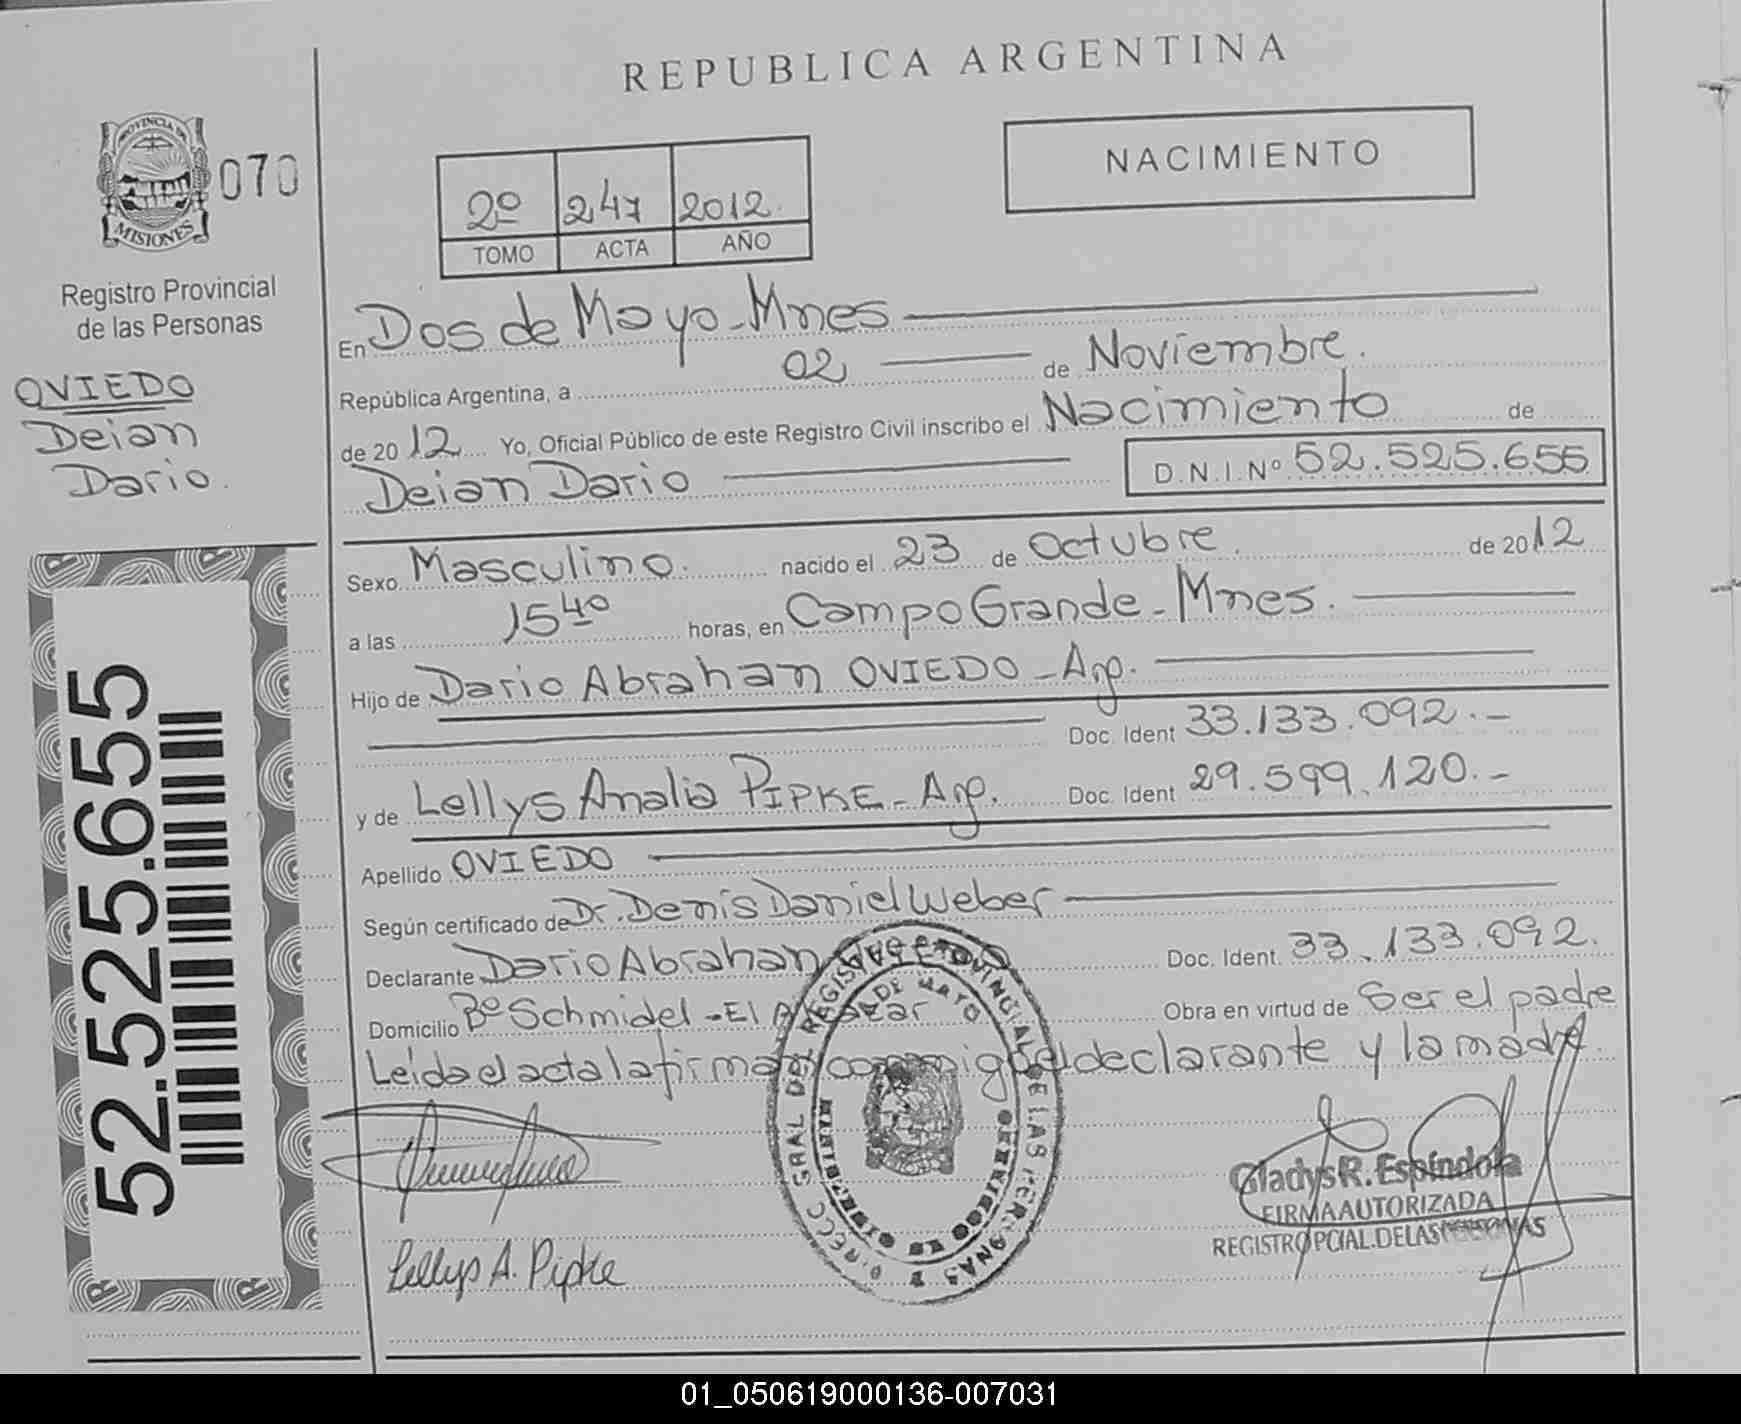 REPUBLICA ARGENTINA
PROVINCIA DE
MISIONES
070
Registro Provincial
de las Personas
OVIEDO
Deian
Dario.
52.525.655
2º 247 2012.
TOMO ACTA AÑO
NACIMIENTO
En Dos de Mayo - Mnes
República Argentina, a 02 de Noviembre.
de 2012 Yo, Oficial Público de este Registro Civil inscribo el Nacimiento de
Deian Dario D.N.I.Nº 52.525.655
Sexo Masculino. nacido el 23 de Octubre. de 2012
a las 15 40 horas, en Campo Grande - Mnes.
Hijo de Dario Abraham OVIEDO - Arg.
Doc. Ident 33.133.092.-
y de Lellys Analia PIPKE - Arg. Doc. Ident 29.599.120.-
Apellido OVIEDO
Según certificado de Dr. Denis Daniel Weber
Declarante Dario Abraham Doc. Ident. 33.133.092.
Domicilio Bº Schmidel - El Alcazar Obra en virtud de Ser el padre
Leída el acta la firman conmigo el declarante y la madre.
Lellys A. Pipke
Gladys R. Espíndola
FIRMA AUTORIZADA
REGISTRO PCIAL. DE LAS PERSONAS
DIRECC GRAL DEL REGISTRO PROVINCIAL DE LAS PERSONAS
DOS DE MAYO
01_050619000136-007031